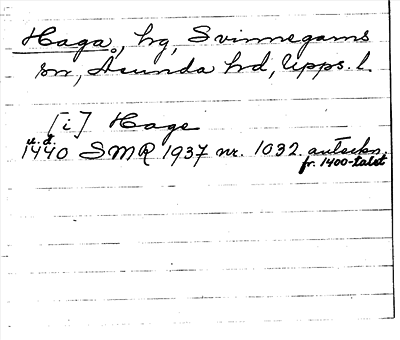 Haga, hg, Svinnegarns
sn, Åsunda hd, Upps. l.
[i] Hage
u. d.
1440 SMR 1937 nr. 1032. anteckn.
fr. 1400-talet